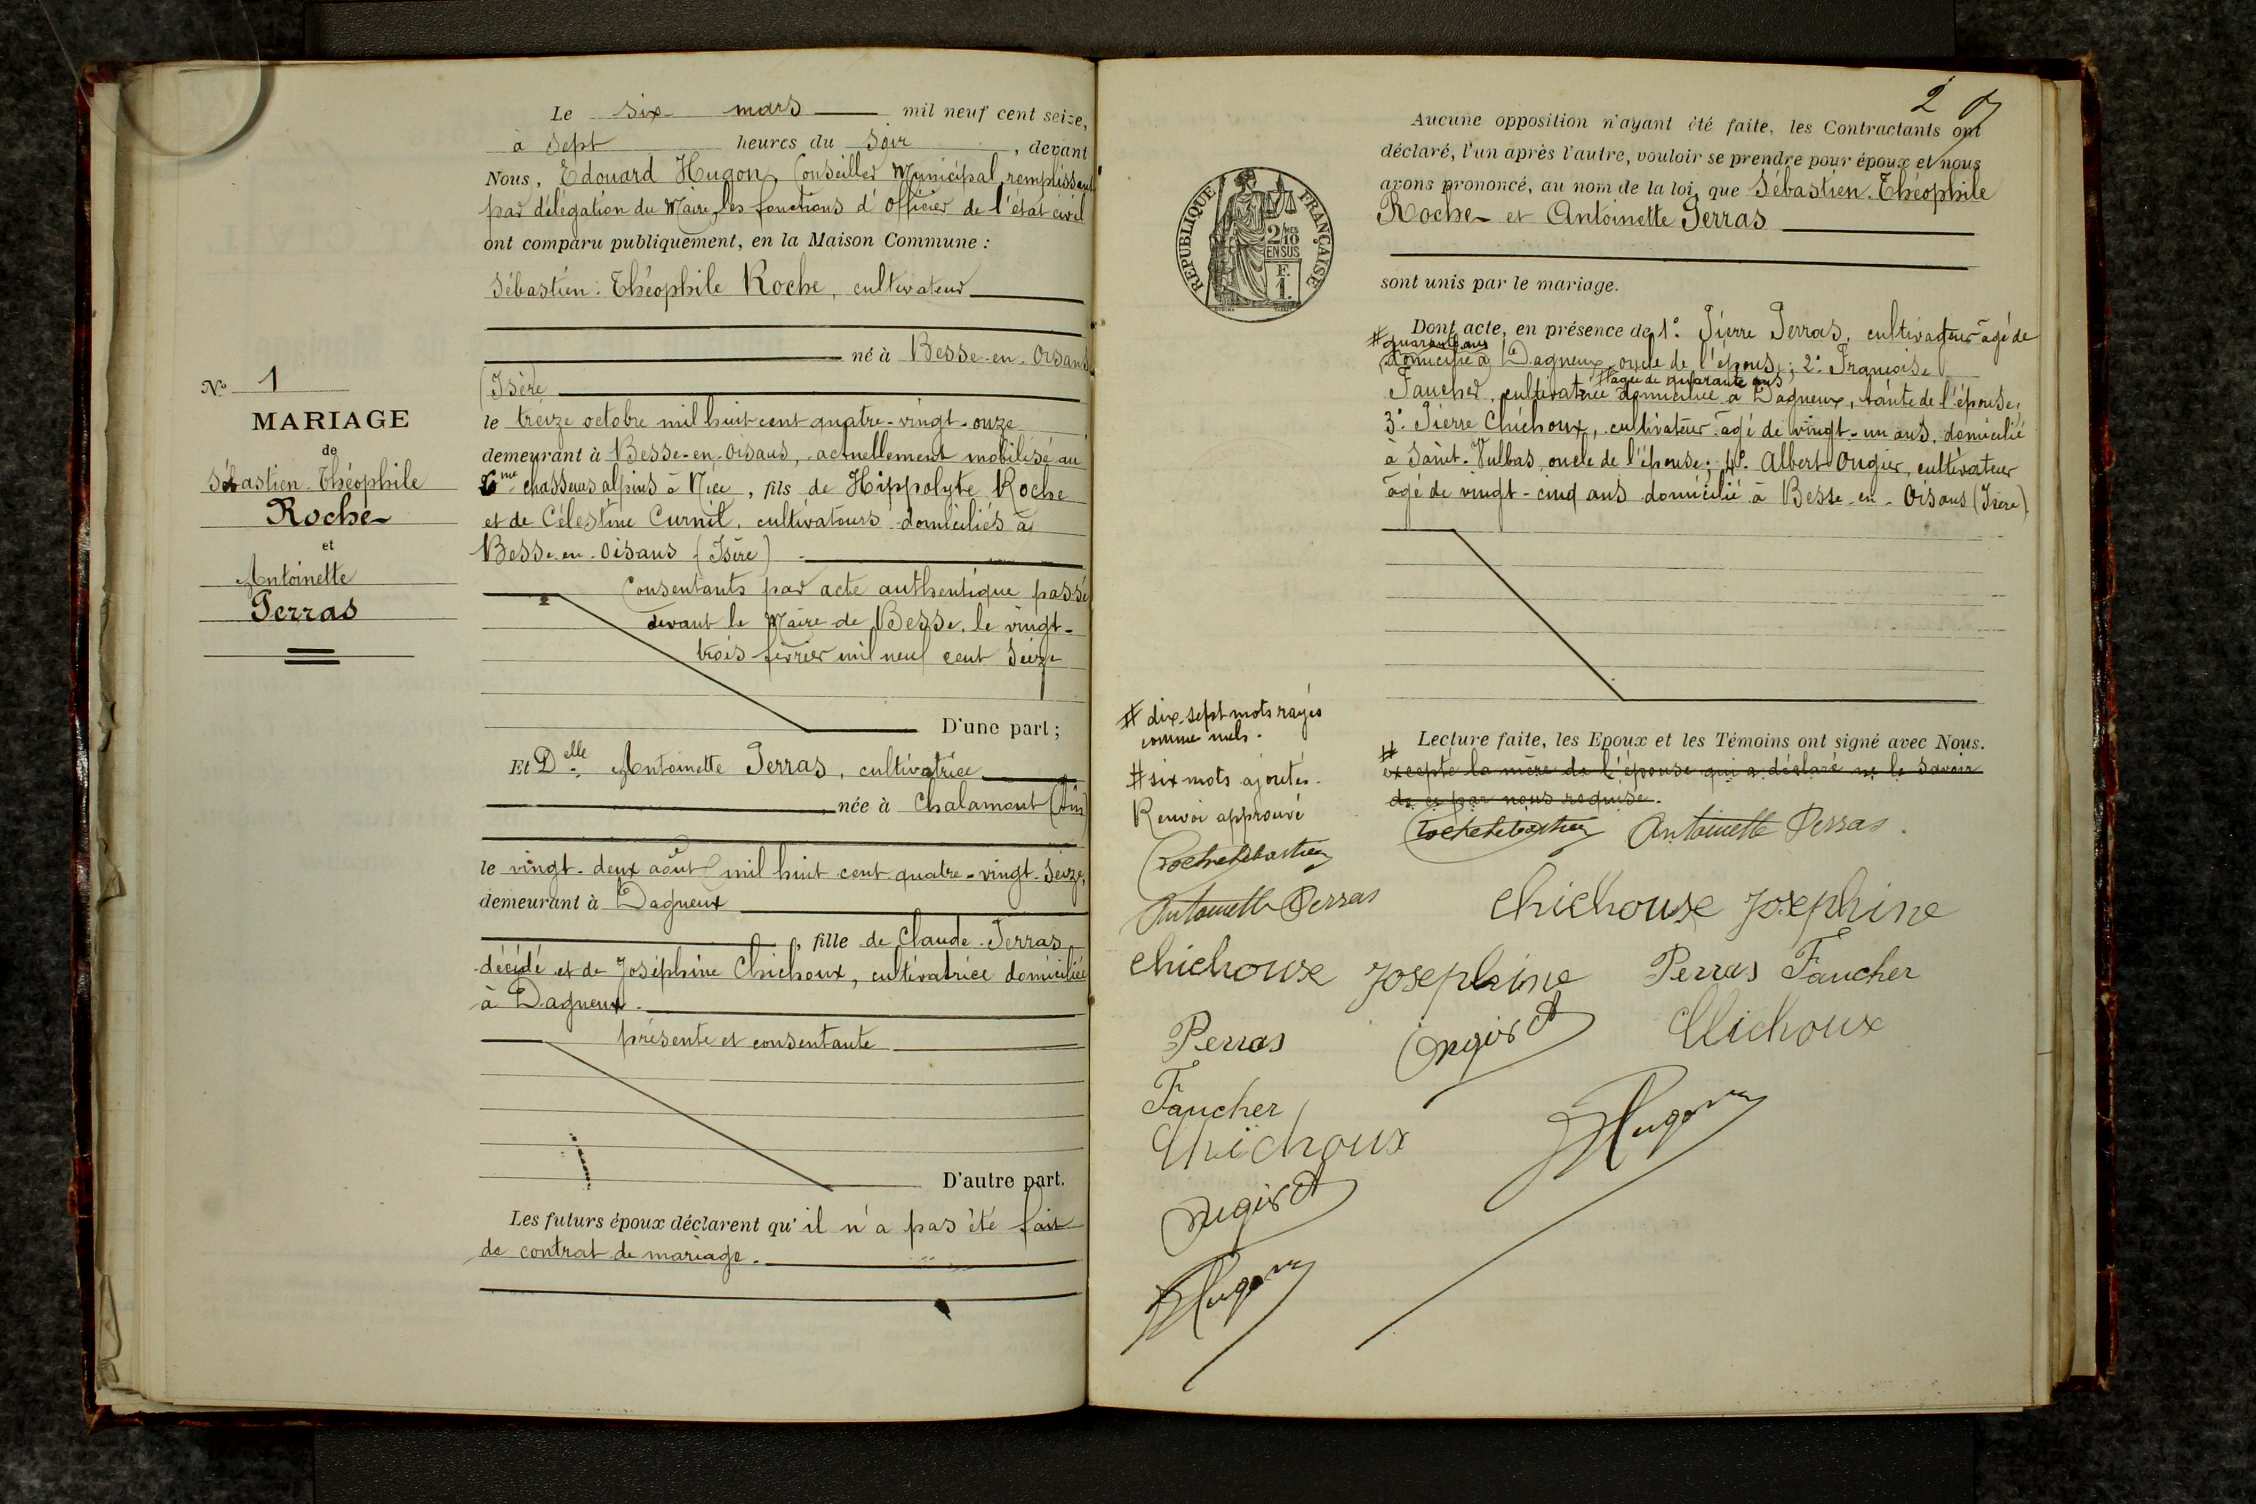 Le six mars mil neuf cent seize,
à sept heures du soir, devant
Nous, Edouard Hugon, Conseiller Municipal, remplissant
par délégation du Maire, les fonctions d'officier de l'état civil
ont comparu publiquement, en la Maison Commune :
Sébastien-Théophile Roche, cultivateur
né à Besse-en-Oisans
(Isère
le treize octobre mil huit cent quatre-vingt-onze
demeurant à Besse-en-Oisans, actuellement mobilisé au
6me chasseurs alpins à Nice, fils de Hippolyte Roche
et de Célestine Curnil, cultivateurs domiciliés à
Besse-en-Oisans (Isère)
Consentants par acte authentique passé
devant le Maire de Besse, le vingt-
trois février mil neuf cent seize
D'une part ;
Et Delle Antoinette Perras, cultivatrice
née à Chalamont (Ain)
le vingt-deux août mil huit cent quatre-vingt-seize,
demeurant à Dagneux
, fille de Claude Perras
décédé et de Joséphine Chichoux, cultivatrice domiciliée
à Dagneux.
présente et consentante
D'autre part.
Les futurs époux déclarent qu'il n'a pas été fait
de contrat de mariage.
N° 1
MARIAGE
de
Sébastien-Théophile
Roche
et
Antoinette
Perras
2
Aucune opposition n'ayant été faite, les Contractants ont
déclaré, l'un après l'autre, vouloir se prendre pour époux et nous
avons prononcé, au nom de la loi, que Sébastien-Théophile
Roche et Antoinette Perras
sont unis par le mariage.
RÉPUBLIQUE FRANÇAISE
2/10
EN SUS
F.
1.
Dont acte, en présence de 1° Pierre Perras, cultivateur âgé de
# quarante ans
domicilié à Dagneux, oncle de l'épouse ; 2° Françoise
# âgée de quarante ans
Faucher, cultivatrice domiciliée à Dagneux, tante de l'épouse,
3° Pierre Chichoux, cultivateur âgé de vingt-un ans, domicilié
à Saint-Vulbas, oncle de l'épouse ; 4° Albert Ougier, cultivateur
âgé de vingt-cinq ans domicilié à Besse-en-Oisans (Isère).
Lecture faite, les Epoux et les Témoins ont signé avec Nous.
# excepté la mère de l'épouse qui a déclaré ne le savoir
de ce par nous requise.
# dix-sept mots rayés
comme nuls.
# six mots ajoutés.
Renvoi approuvé
roche sébastien
Antoinette Perras
chichouse Josephine
Perras
Ougier A
Faucher
Chichoux
Ougier A
Hugon
roche sébastien Antoinette Perras.
chichouse Josephine
Perras Faucher
Chichoux
Hugon